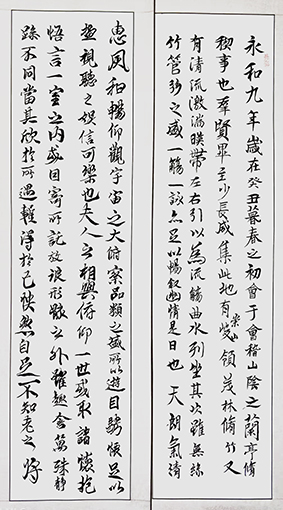 永和九年歲在癸丑暮春之初會于會稽山陰之蘭亭脩
稧事也羣賢畢至少長咸集此地有崇山峻領茂林脩竹又
有清流激湍暎帶左右引以為流觴曲水列坐其次雖無絲
竹管弦之盛一觴一詠亦足以暢叙幽情是日也天朗氣清
惠風和暢仰觀宇宙之大俯察品類之盛所以遊目騁懷足以
極視聽之娛信可樂也夫人之相與俯仰一世或取諸懷抱
悟言一室之內或因寄所託放浪形骸之外雖趣舍萬殊靜
躁不同當其欣於所遇蹔得於己怏然自足不知老之將